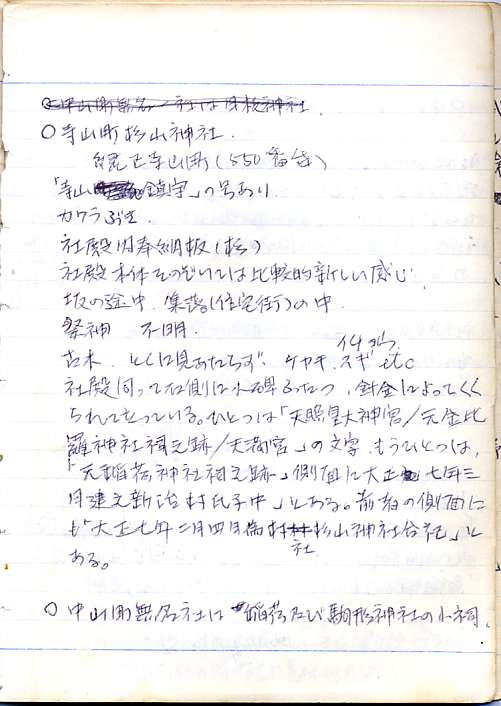 ○中山町無名ノ社は日枝神社.
○寺山町杉山神社.
緑区寺山町(550番台)
「寺山鎮守」の号あり.
カワラぶき.
社殿内奉納板(杉)
社殿本体をのぞいては比較的新しい感じ.
坂の途中. 集落(住宅街)の中.
祭神 不明.
古木. とくに見あたらず. ケヤキ. スギ etc
イチョウ.
社殿向って右側に小碑ふたつ, 針金によってくく
られてたっている。ひとつは「天照皇大神宮/元金比
羅神社祠之跡/天満宮」の文字. もうひとつは,
「元稲荷神社祠之跡」側面に大正七年三
月建之新治村氏子中」とある。前者の側面に
も「大正七年二月四日為村社杉山神社合祀」と
ある。
○中山町無名社は稲荷及び駒形神社の小祠.